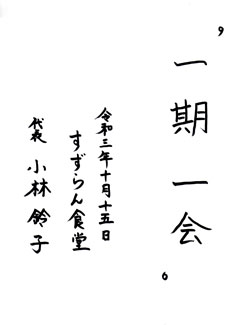 9
一期一会
6
令和三年十月十五日
すずらん食堂
代表 小林鈴子